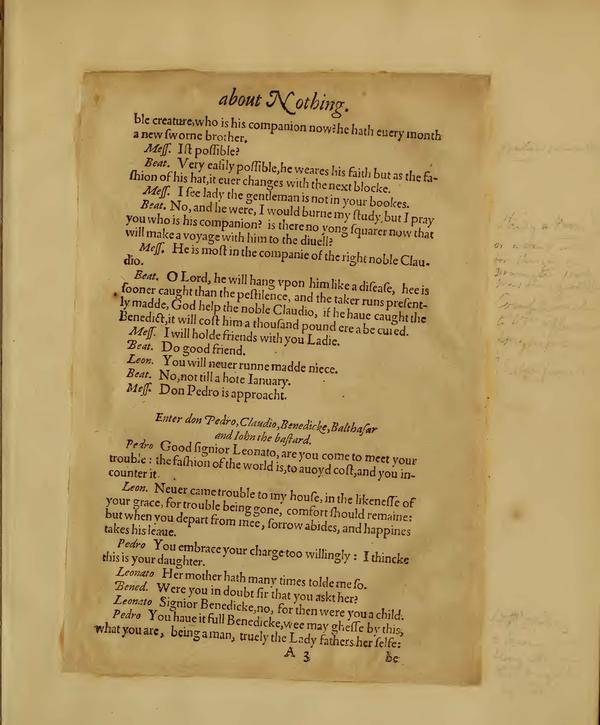 about Nothing.
ble creature, who is his companion now? he hath euery month
a new sworne brother.
Mess. Ist possible?
Beat. Very easily possible, he weares his faith but as the fa-
shion of his hat, it euer changes with the next blocke.
Mess. I see lady the gentleman is not in your bookes.
Beat. No, and he were, I would burne my study, but I pray
you who is his companion? is there no yong squarer now that
will make a voyage with him to the diuell?
Mess. He is most in the companie of the right noble Clau-
dio.
Beat. O Lord, he will hang vpon him like a disease, hee is
sooner caught than the pestilence, and the taker runs present-
ly madde, God help the noble Claudio, if he haue caught the
Benedict, it will cost him a thousand pound ere a be cured.
Mess. I will holde friends with you Ladie.
Beat. Do good friend.
Leon. You will neuer runne madde niece.
Beat. No, not till a hote Ianuary.
Mess. Don Pedro is approacht.
Enter don Pedro, Claudio, Benedicke, Balthasar
and Iohn the bastard.
Pedro Good signior Leonato, are you come to meet your
trouble: the fashion of the world is, to auoyd cost, and you in-
counter it.
Leon. Neuer came trouble to my house, in the likenesse of
your grace, for trouble being gone, comfort should remaine:
but when you depart from mee, sorrow abides, and happines
takes his leaue.
Pedro You embrace your charge too willingly: I thincke
this is your daughter.
Leonato Her mother hath many times tolde me so.
Bened. Were you in doubt sir that you askt her?
Leonato Signior Benedicke, no, for then were you a child.
Pedro You haue it full Benedicke, wee may ghesse by this,
what you are, being a man, truely the Lady fathers her selfe:
A 3 be